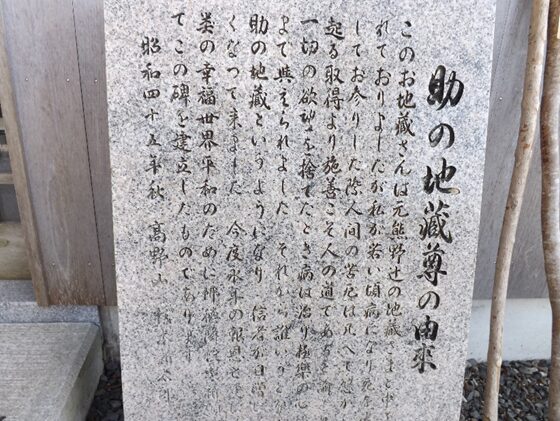 助の地蔵尊の由来
このお地蔵さんは元熊野辻の地蔵さまと
れておりましたが私が若い頃病になり死を
してお参りした際人間の苦厄は凡べて慾か
起る取得より施善こそ人の道であると
一切の欲望を捨てたとき病は治り極楽の心
まで與えられました それから誰いうとな
助の地蔵というようになり 信者が日増
くなって来ました 今度永年の報恩と
業の幸福世界平和のために
てこの碑を建立したものであります
昭和四十五年秋 高野山